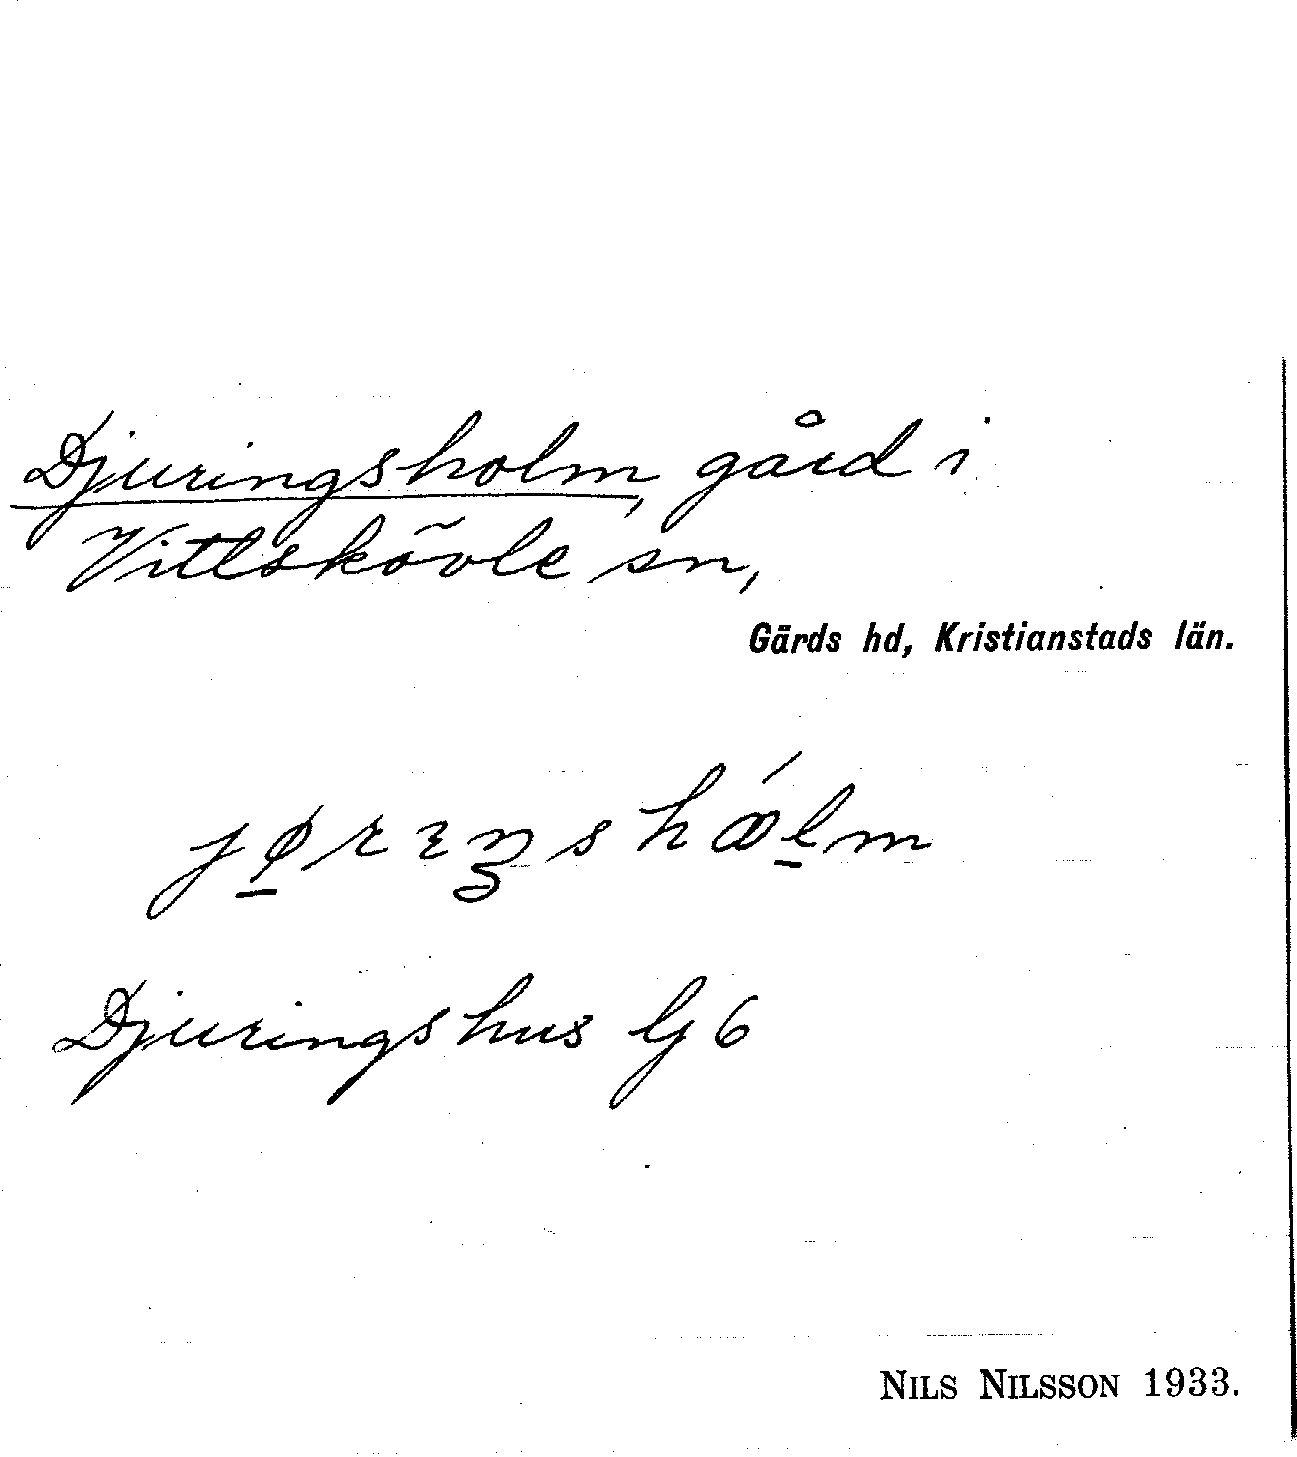 Djuringsholm, gård i
Vittskövle sn,
Gärds hd, Kristianstads län.
Djuringshus G 6
NILS NILSSON 1933.